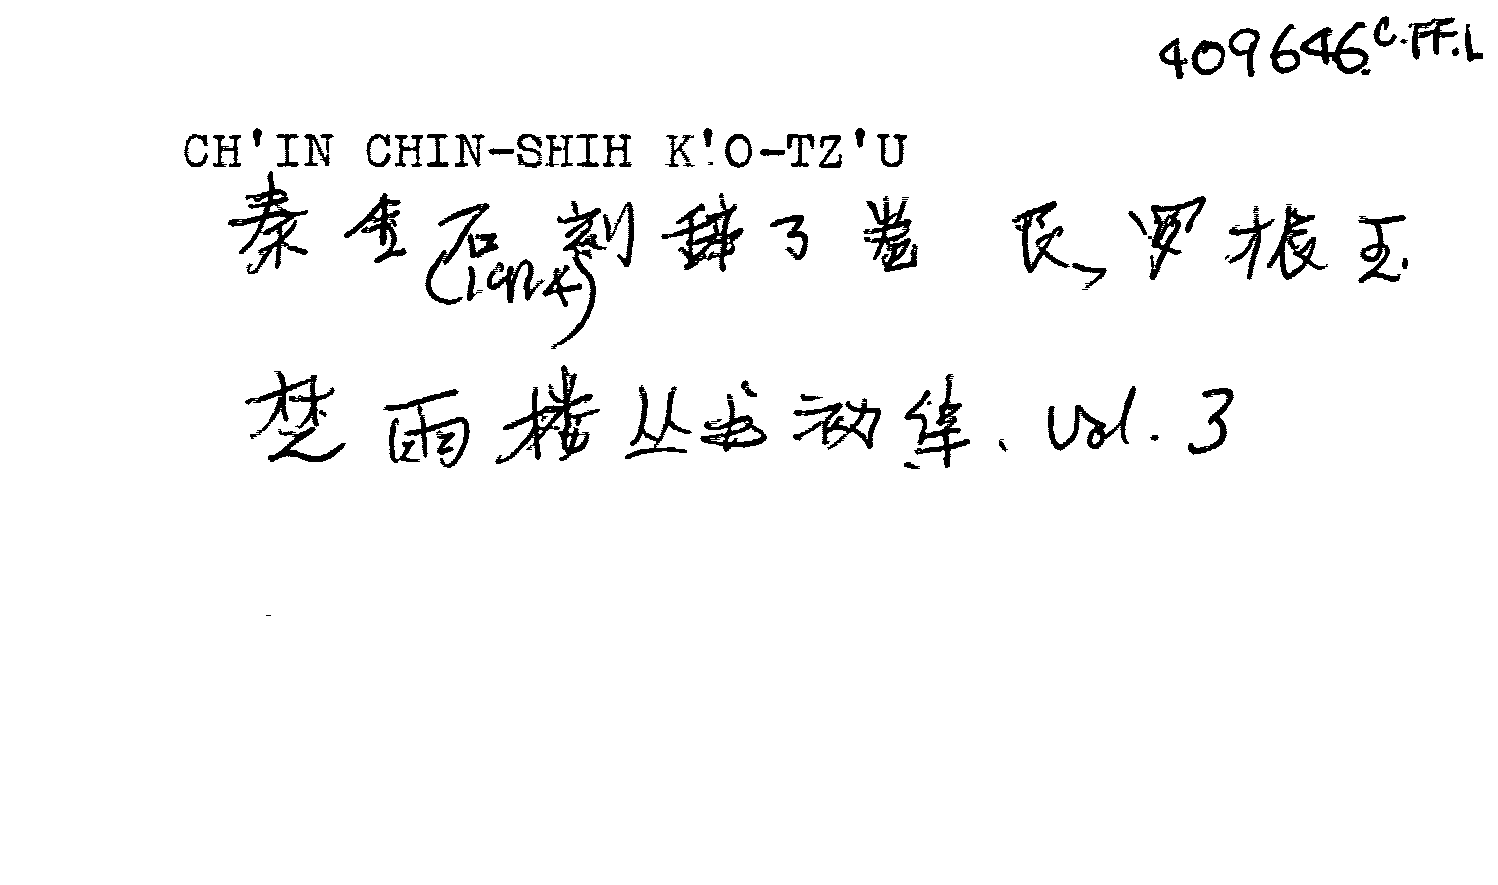 409646 C.FF.L
CH'IN CHIN-SHIH K'O-TZ'U
秦金石刻辞3卷 民、罗振玉.
(1914)
楚雨楼丛书初集、Vol. 3